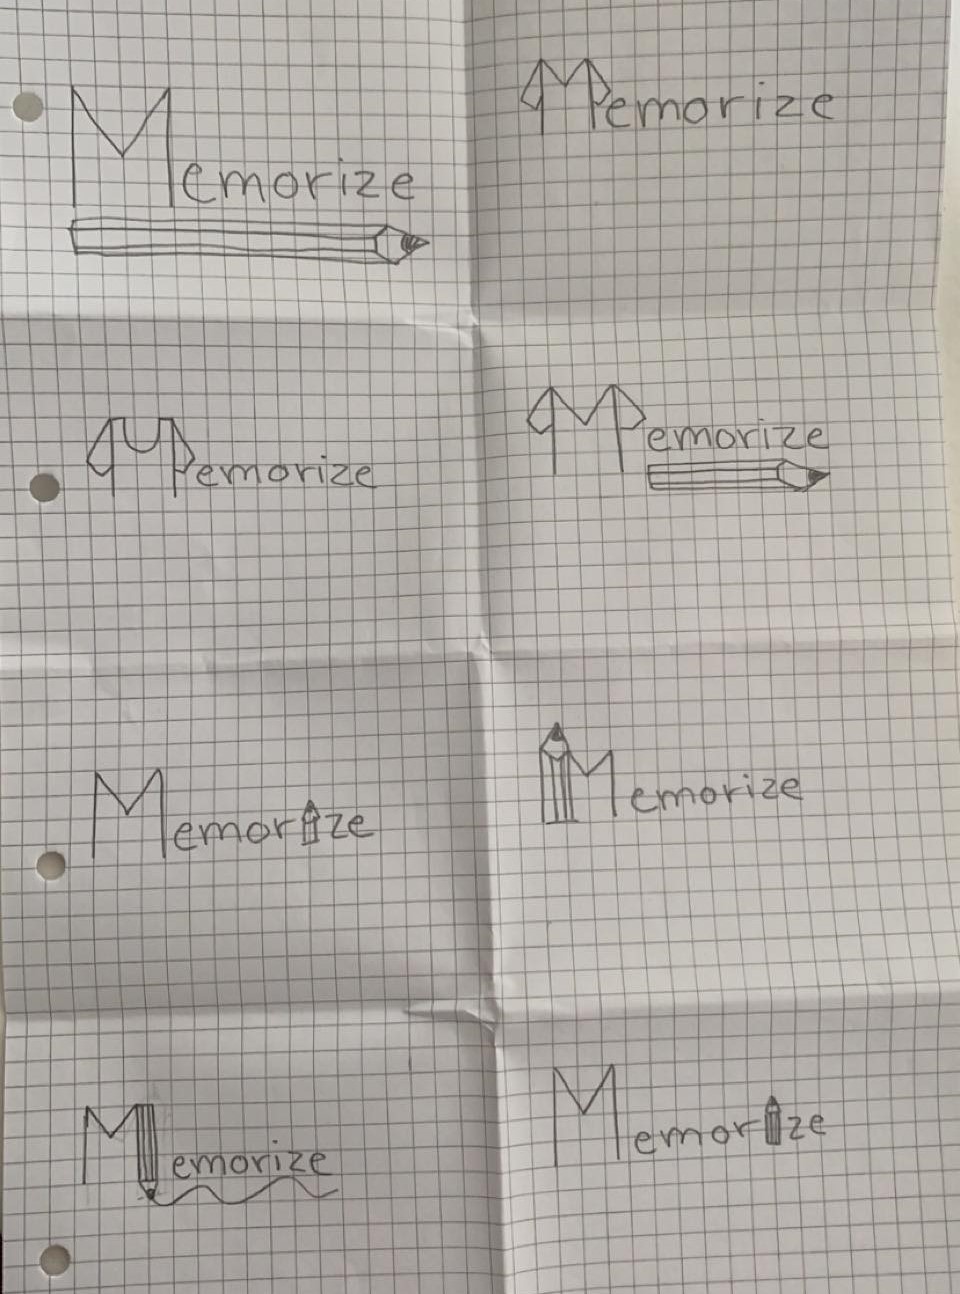 Memorize
Memorize
Memorize
Memorize
Memorize
Memorize
Memorize
Memorize